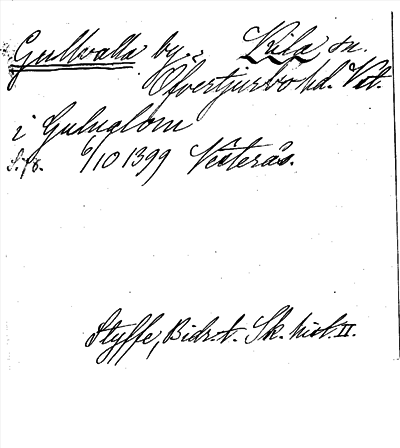 Gullvalla by. Kila sn.
Øfvertjurbo hd. Vst.
i Gulualom
S. 78. 6/10 1399 Västerås.
Styffe, Bidr. t. Sk. hist. II.